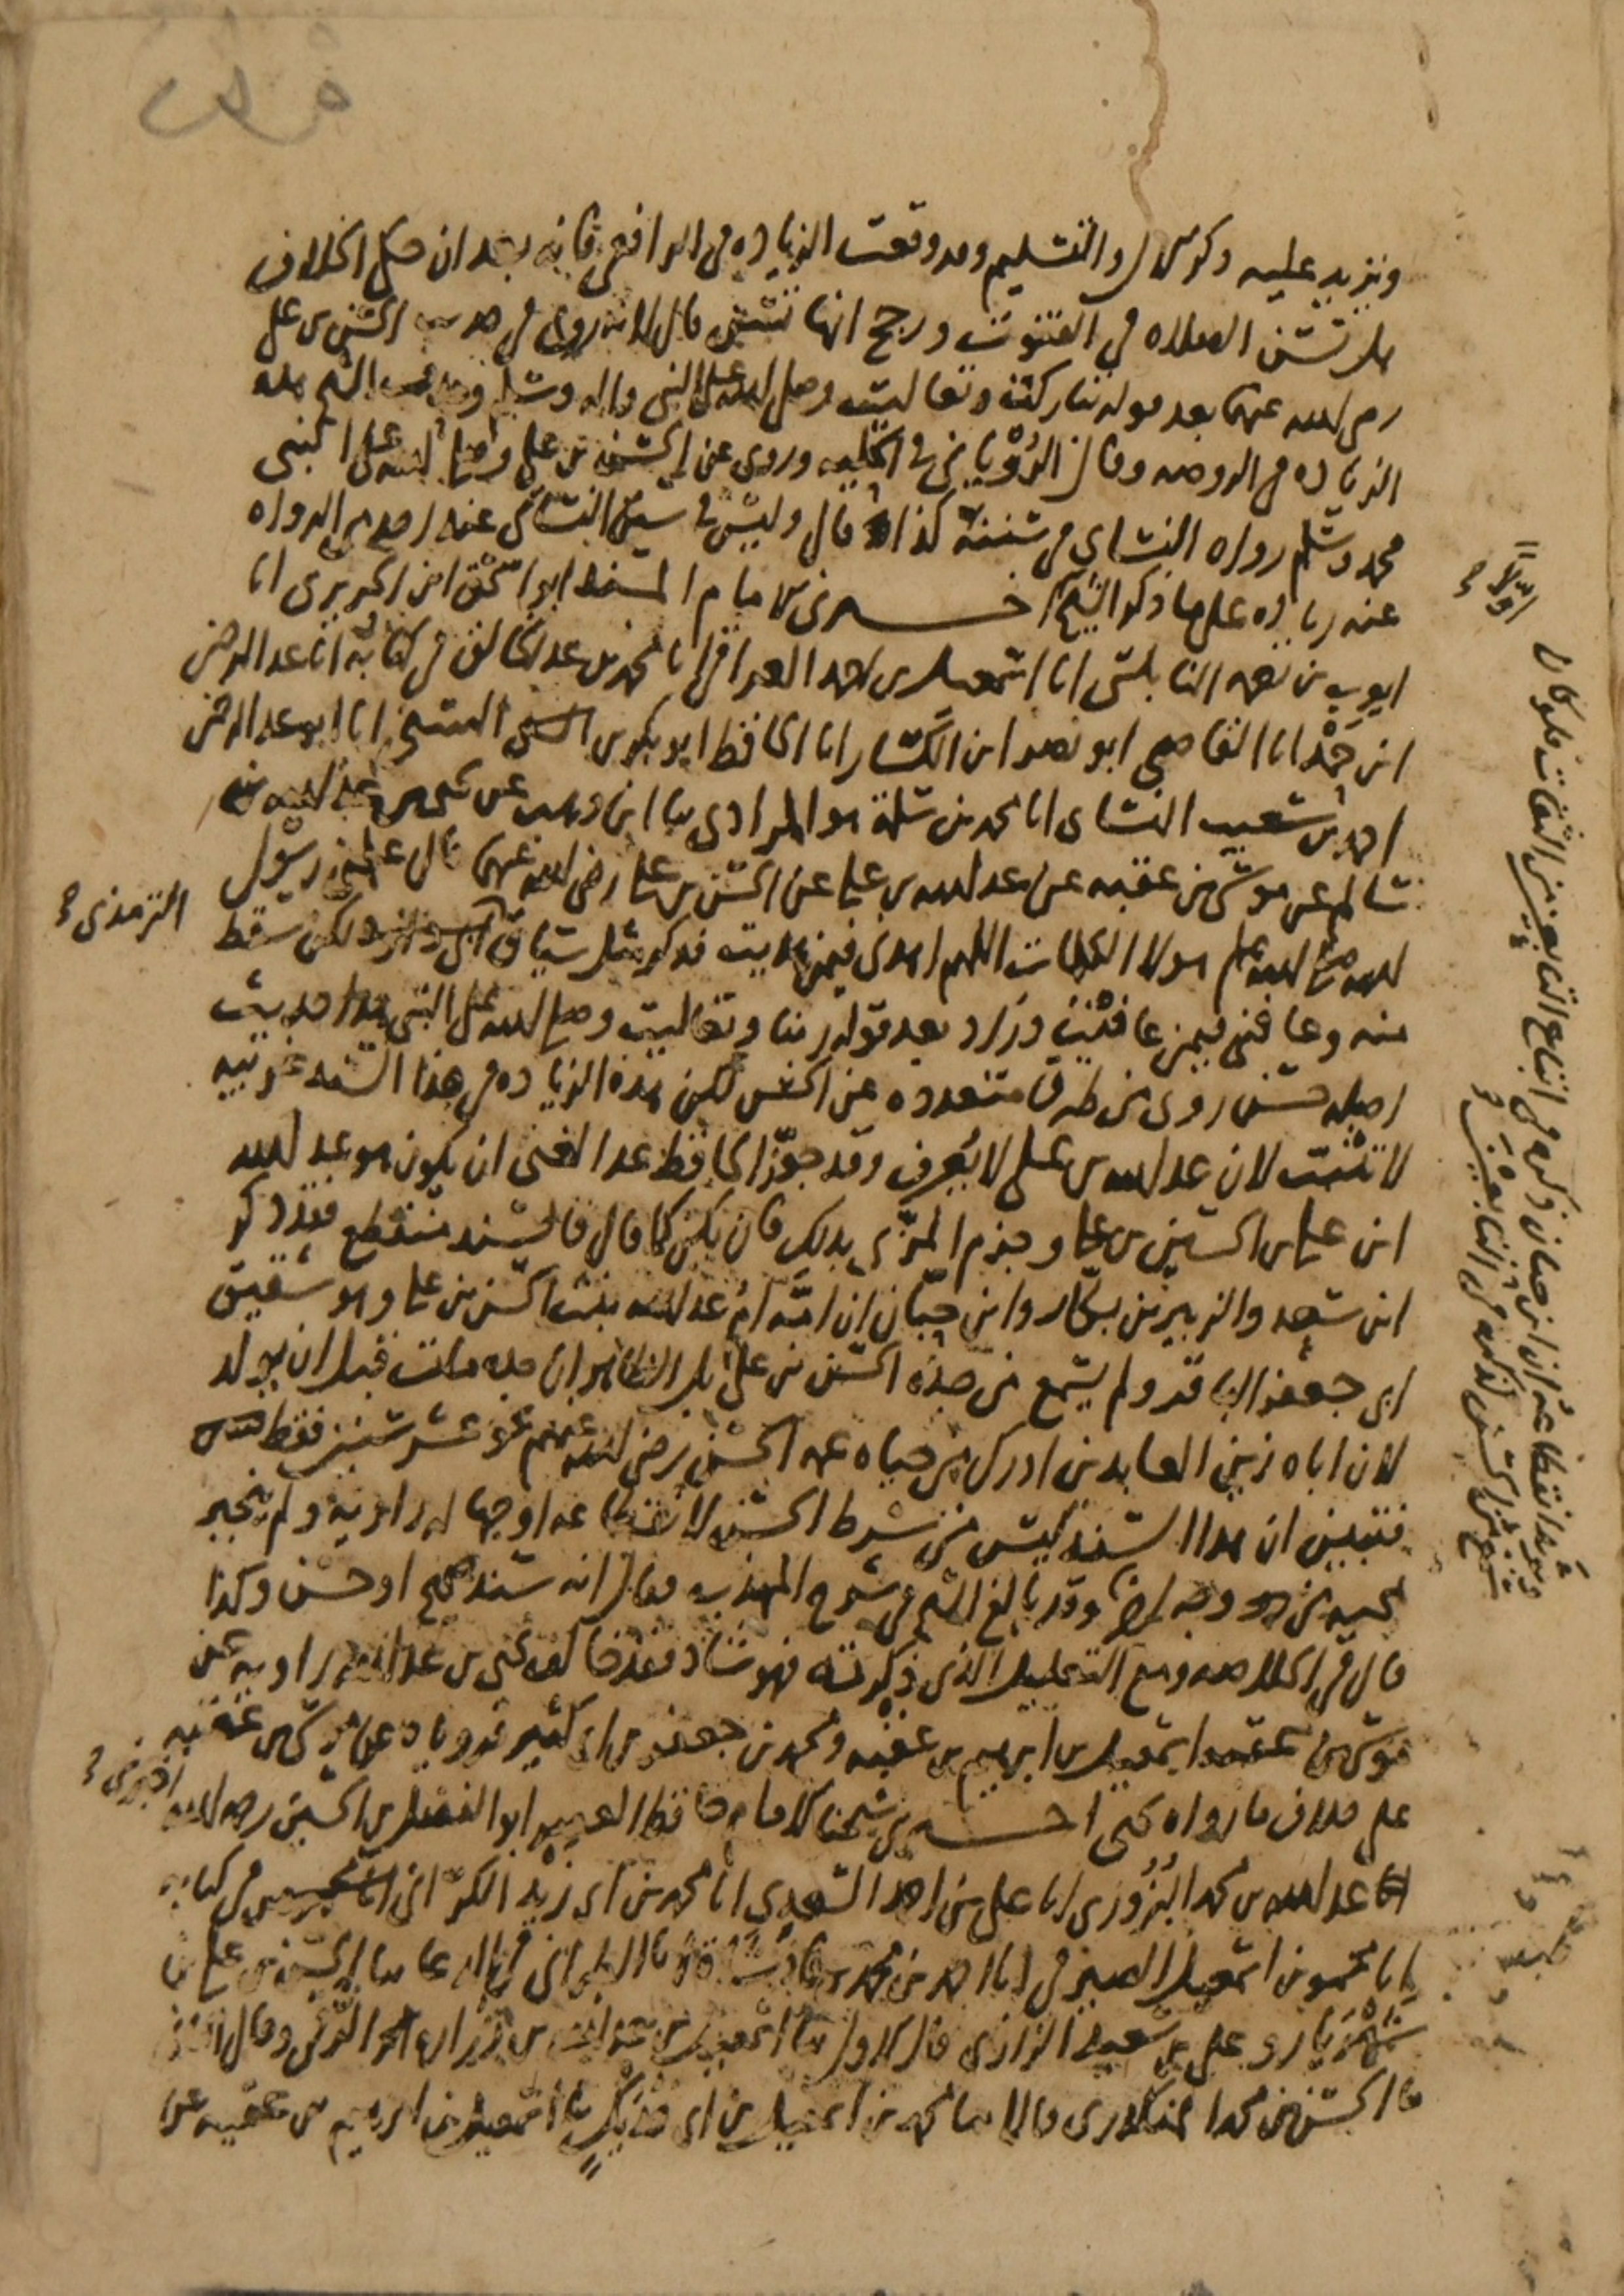 ونزيد عليه ذكر الآل والتسليم وقد وقعت الزيادة في الرافعي فانه بعد ان حكى الخلاف
هل تسن الصلاة في القنوت ورجح انها تسن قال لانه روي في حديث الحسن بن علي
رضي الله عنهما بعد قوله تباركت وتعاليت وصلى الله على النبي واله وسلم وتبعه الشيخ هذه
الزيادة في الروضة وقال الروياني في الحلية وروي عن الحسن بن علي وصلى الله على النبي
محمد وسلم رواه النسائي في سننه كذا قال وليس في سنن النسائي عند احد من الرواه
عنه زيادة على ما ذكر الشيخ اخبرني الامام المسند ابو اسحق ابن الحريري انا
ايوب بن نعمة النابلسي انا اسمعيل بن احمد العراقي انا محمد بن عبد الخالق في كتابه انا عبد الرحمن
ابن حمد انا القاضي ابو نصر ابن الكسار انا الحافظ ابو بكر بن السني انا ابو عبد الرحمن
احمد بن شعيب النسائي انا محمد بن سلمة هو المرادي ثنا ابن وهب عن يحيى بن عبد الله بن
سالم عن موسى بن عقبة عن عبد الله بن علي عن الحسن بن علي رضي الله عنهما قال علمني رسول
الله صلى الله عليه وسلم هولاء الكلمات اللهم اهدني فيمن هديت فذكر مثل سياق الترمذي لكن سقط
منه وعافني فيمن عافيت وزاد بعد قوله ربنا وتعاليت وصلى الله على النبي هذا حديث
اصله حسن روي من طرق متعددة عن الحسن لكن هذه الزيادة في هذا السند غريبة
لا تثبت لان عبد الله بن علي لا يعرف وقد جوز الحافظ عبد الغني ان يكون هو عبد الله
ابن علي بن الحسين بن علي وجزم المزي بذلك فان يكن كما قال فالسند منقطع فقد ذكر
ابن سعد والزبير بن بكار وابن حبان ان امه ام عبد الله بنت الحسن بن علي وهو شقيق
ابي جعفر الباقر ولم يسمع من جده الحسن بن علي بل الظاهر ان جده مات قبل ان يولد
لان اباه زين العابدين ادرك من حياة عمه الحسن رضي الله عنهم نحو عشر سنين فقط
فتبين ان هذا السند ليس من شرط الحسن لانقطاعه او جهالة راويه ولم ينجبر
بمجيئه من وجه اخر وقد بالغ الشيخ في شرح المهذب فقال انه سند صحيح او حسن وكذا
قال في الخلاصة ومع التعليل الذي ذكرته فهو شاذ فقد خالف يحيى بن عبد الله راويه عن
موسى بن عقبة اسمعيل بن ابرهيم بن عقبة ومحمد بن جعفر بن ابي كثير فروياه عن موسى بن عقبة
على خلاف ما رواه يحيى اخبرني شيخنا الامام حافظ العصر ابو الفضل بن الحسين رحمه الله
انا عبد الله بن محمد البزوري انا علي بن احمد السعدي انا محمد بن ابي زيد الكراني في كتابه
انا محمود بن اسمعيل الصيرفي انا احمد بن محمد بن فاذشاه انا الطبراني في الدعا ثنا الحسن بن علي بن
شهريار وعلي بن سعيد الرازي قال الاول ثنا اسمعيل بن عبد الله بن زرارة الرقي وقال الثاني
ثنا الحسن بن محمد المنكدري قالا ثنا محمد بن اسمعيل بن ابي فديك ثنا اسمعيل بن ابرهيم بن عقبة عن
اولا ح
الترمذي ح
اخبرني ح
ويؤيد انقطاعه ان ابن حبان ذكره في اتباع التابعين من الثقات فلو كان
سمع من الحسن لذكره في التابعين